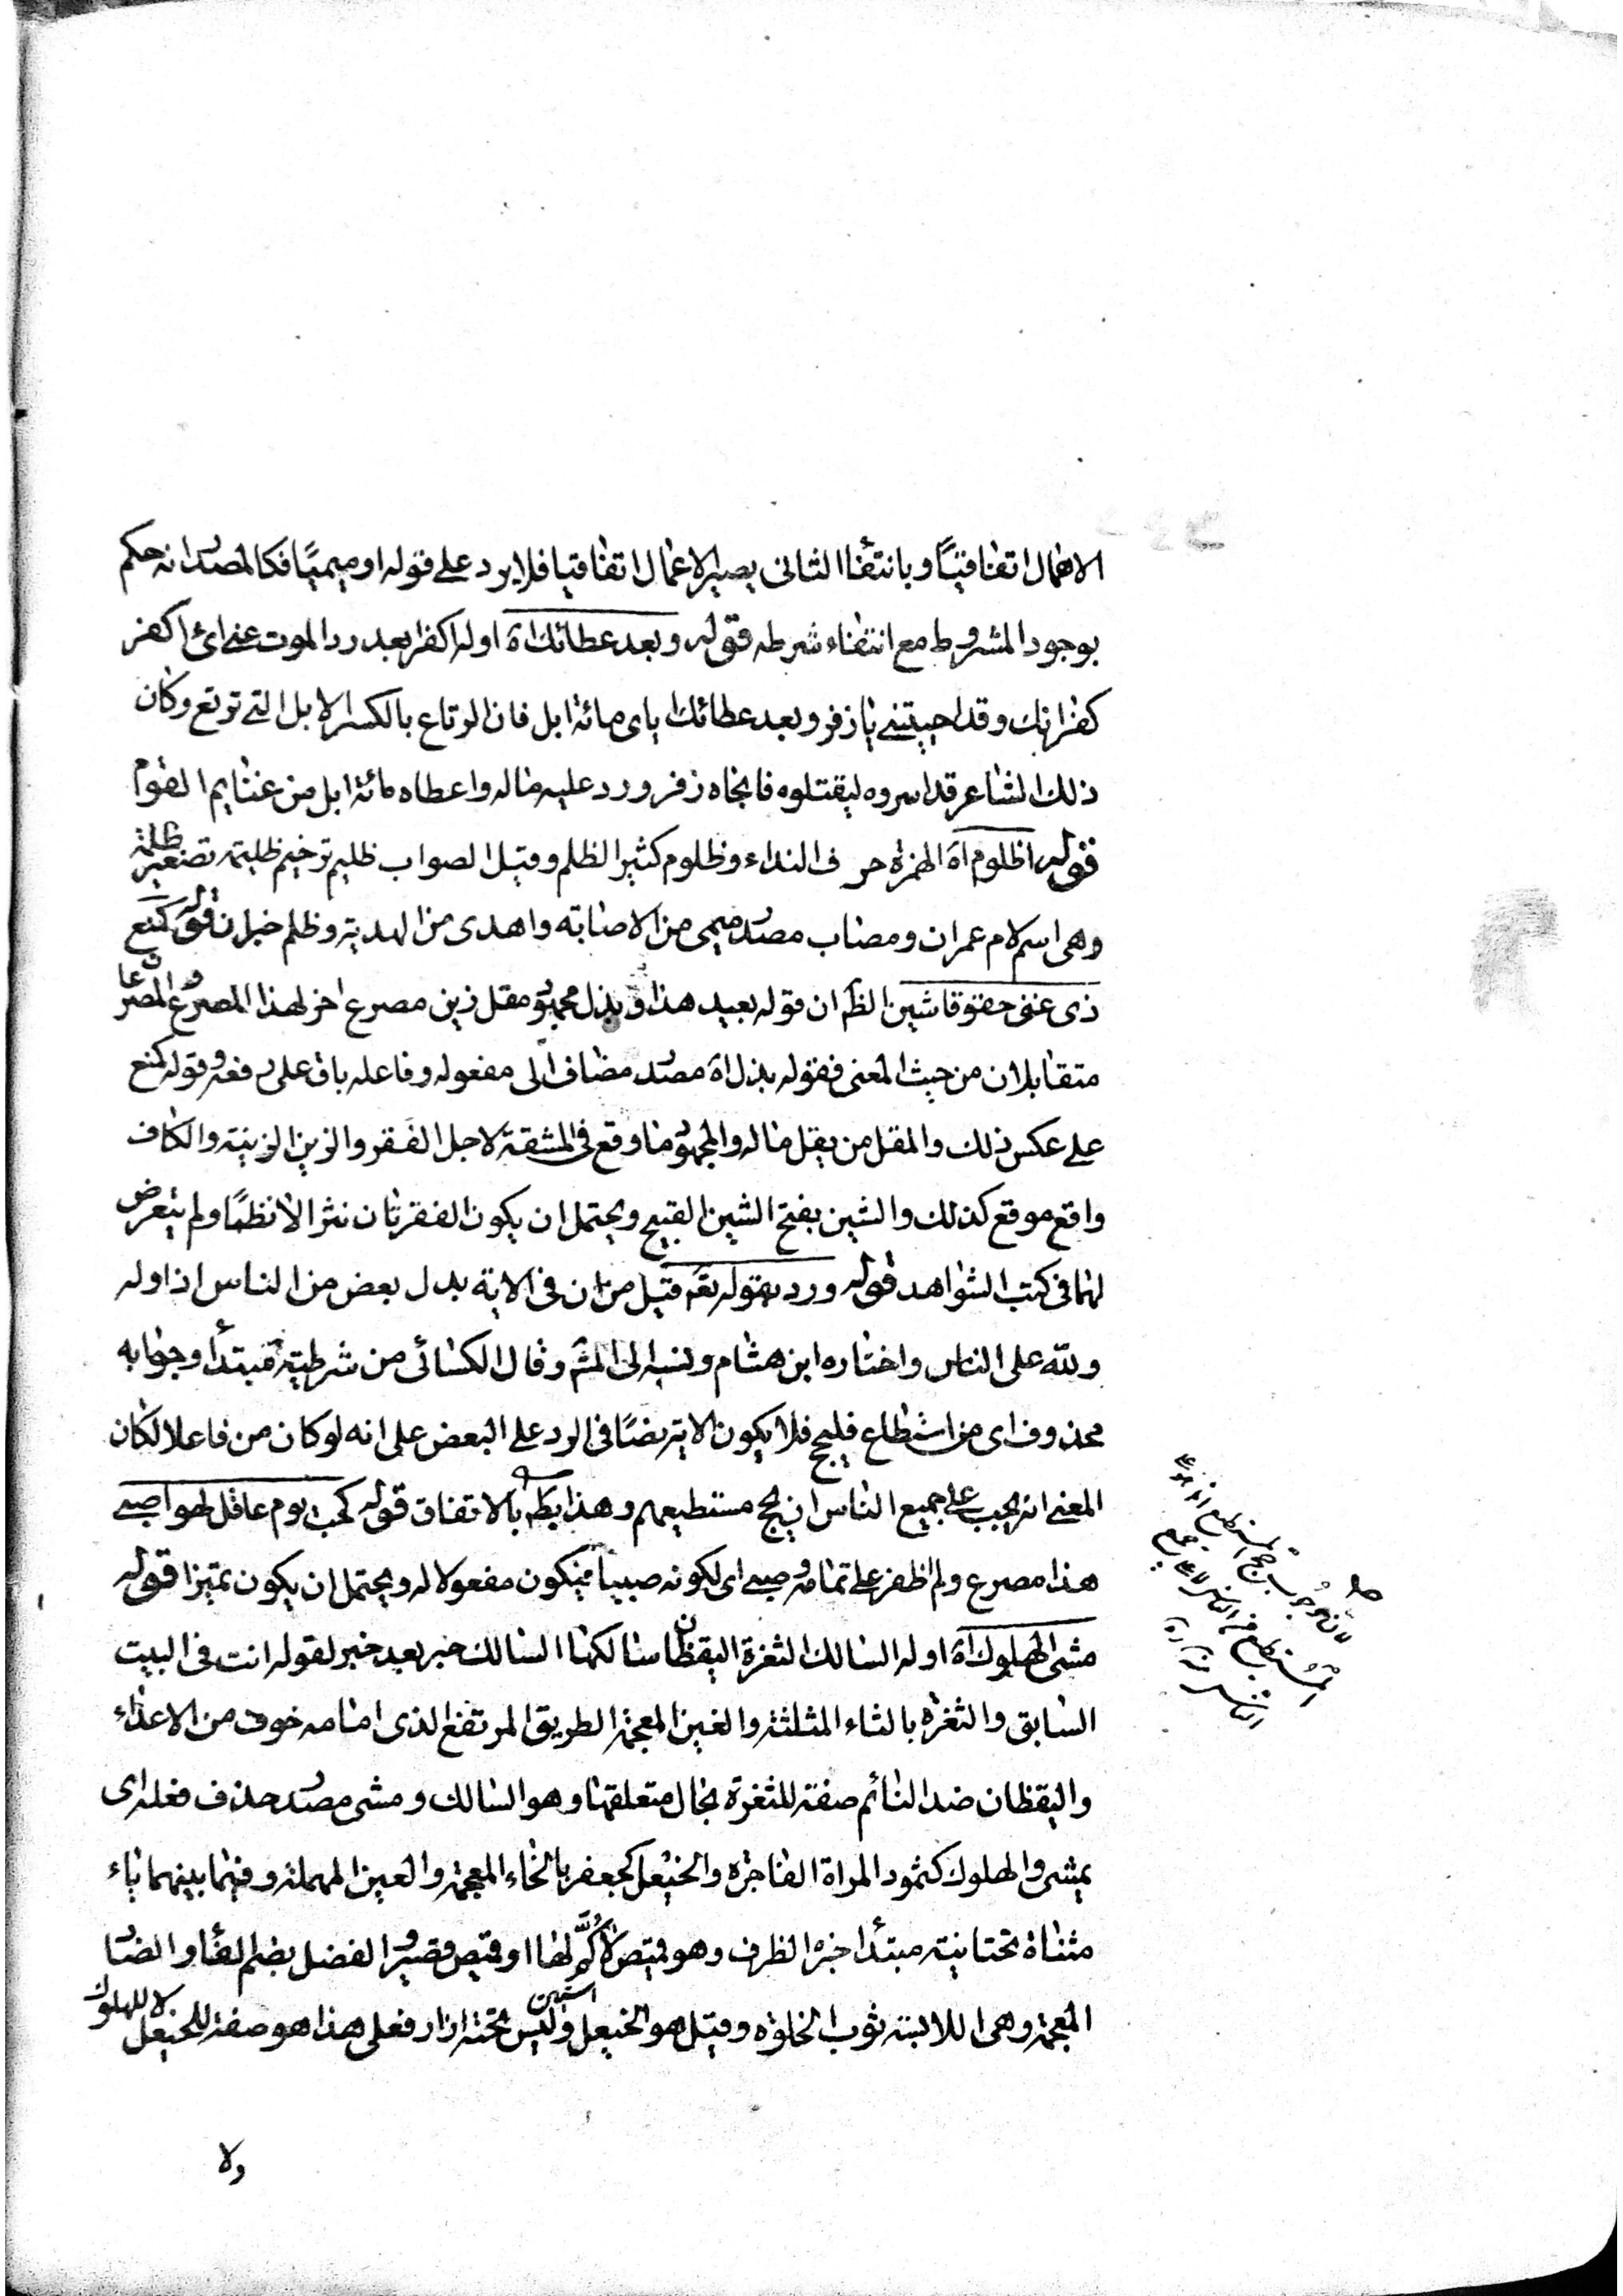 الاعمال اتفاقيًا وبانتفاء الثاني يصير الاعمال اتفاقيا فلا يرد على قوله او ميميًا فكالمصدر انه حكم
بوجود المشروط مع انتفاء شرطه قوله وبعد عطائك اه اوله اكفرا بعد رد الموت عنى اى اكفر
كفرانك وقد احييتنى يا زفر وبعد عطائك اياى مائة ابل فان الرتاع بالكسر الابل التى ترتع وكان
ذلك الشاعر قد اسروه ليقتلوه فانجاه زفر ورد عليه ماله واعطاه مائة ابل من غنايم القوم
قوله اظلوم اه الهمزة حرف النداء وظلوم كثير الظلم وقيل الصواب ظليم ترخيم ظليمة تصغير ظلمة
وهى اسم لام عمران ومصاب مصدر ميمى من الاصابة واهدى من الهدية وظلم خبر ان قوله كمنع
ذى غنى حقوقا شين الظ ان قوله بعيد هذا وبذل مجهود مقل زين مصرع اخر لهذا المصرع والمصرعان
متقابلان من حيث المعنى فقوله بذل اه مصدر مضاف الى مفعوله وفاعله باق على رفعه وقوله كمنع
على عكس ذلك والمقل من يقل ماله والمجهود ما وقع فى المشقة لاجل الفقر والزين الزينة والكاف
واقع موقع كذلك والشين بفتح الشين القبيح ويحتمل ان يكون الفقرتان نثرا لا نظمًا ولم يتعرض
لهما فى كتب الشواهد قوله ورد بقوله تع قيل من ان فى الاية بدل بعض من الناس اذ اوله
ولله على الناس واختاره ابن هشام ونسبه الى المش وقال الكسائى من شرطية مبتدأ وجوابه
محذوف اى من استطاع فليحج فلا يكون الاية نصًا فى الرد على البعض على انه لو كان من فاعلا لكان
المعنى انه يجب على جميع الناس ان يحج مستطيعهم وهذا بط بالاتفاق قوله كحب يوم عاقل لهوا صبى
هذا مصرع ولم اظفر على تمامه وصبى اى لكونه صبيا فيكون مفعولا له ويحتمل ان يكون تميزا قوله
مشى الهلوك اه اوله السالك الثغرة اليقظان سالكها السالك خبر بعد خبر لقوله انت فى البيت
السابق والثغرة بالثاء المثلثة والغين المعجمة الطريق المرتفع الذى امامه خوف من الاعداء
واليقظان ضد النائم صفة للثغرة بحال متعلقها وهو السالك ومشى مصدر حذف فعله اى
يمشى والهلوك كثمود المراة الفاجرة والخيعل كجعفر بالخاء المعجمة والعين المهملة وفيما بينهما ياء
مثناة تحتانية مبتدأ خبره الظرف وهو قميص لا كم لها او قميص قصير والفضل بضم الفاء والضاد
المعجمة وهى اللابسة ثوب الخلوة وقيل هو الخيعل وليس تحته ازار فعلى هذا هو صفة للخيعل لا للهلوك
ولا